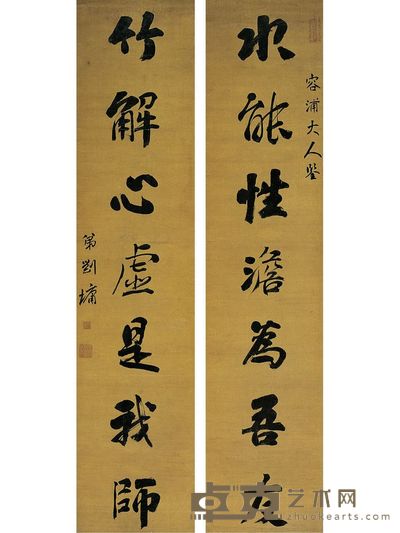 容浦大人鉴
水能性澹為吾友
竹解心虛是我師
弟劉墉
卓克艺术网
zhuokearts.com